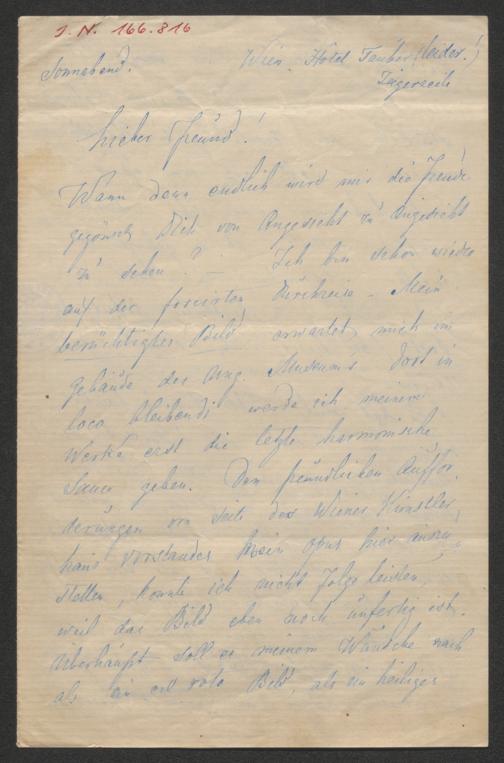 J. N. 166.816
Sonnabend.
Wien. Hotel Tauber (leider!)
Jägerzeile
Lieber Freund!
Wann denn endlich wird mir die Freude
gegönnt Dich von Angesicht zu Angesicht
zu sehen? — Ich bin schon wieder
auf der forcirten Durchreise — Mein
berüchtigtes Bild erwartet mich im
Gebäude des ung. Museum's dort in
loco bleibend werde ich meinem
Werke erst die letzte harmonische
geben. Den freundlichen Auffor
derungen von Seite des Wiener Künstler
haus Vorstandes mein opus hier auszu
stellen, konnte ich nicht Folge leisten,
weil das Bild eben noch unfertig ist.
Überhaupt soll es meinem Wunsche nach
als ein Bild, als ein heiliges